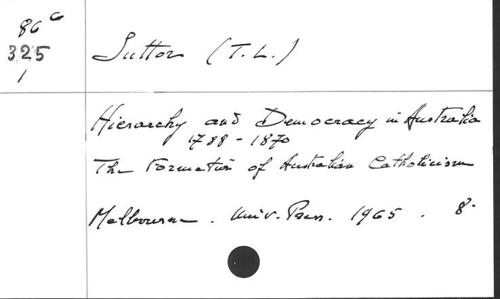 86 G
325
1
Suttor (T.L.)
Hierarchy and Democracy in Australia
1788 - 1870
The Formation of Australian Catholicism
Melbourne. Univ. Press. 1965. 8°